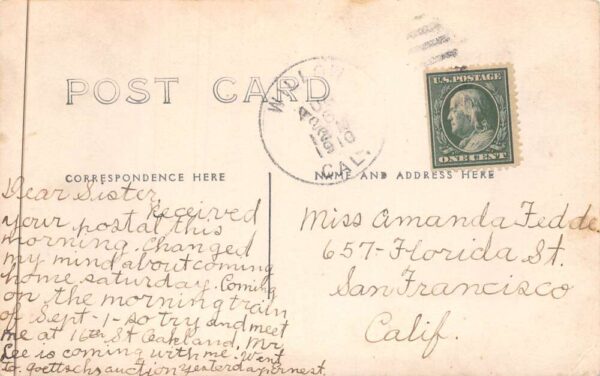 U.S. POSTAGE
ONE CENT
POST CARD
CAL.
CORRESPONDENCE HERE
NAME AND ADDRESS HERE
Dear Sister
Received
your postal this
morning. Changed
my mind about coming
home saturday. Coming
on the morning train
of Sept-1-so try and meet
me at 16th St Oakland, Mr
Lee is coming with me. Went
to goettschs auction yesterday
Miss Amanda Fedde
657-Florida St.
San Francisco
Calif.